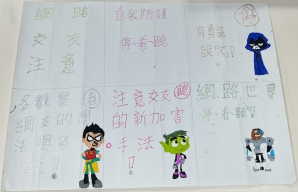 網路
交友
注意
自我防護
停看聽
有勇氣
說不!
停
多觀察
網友的想
法與
看
注意交友
的新加害
手法!
聽
網路世界
停看聽!